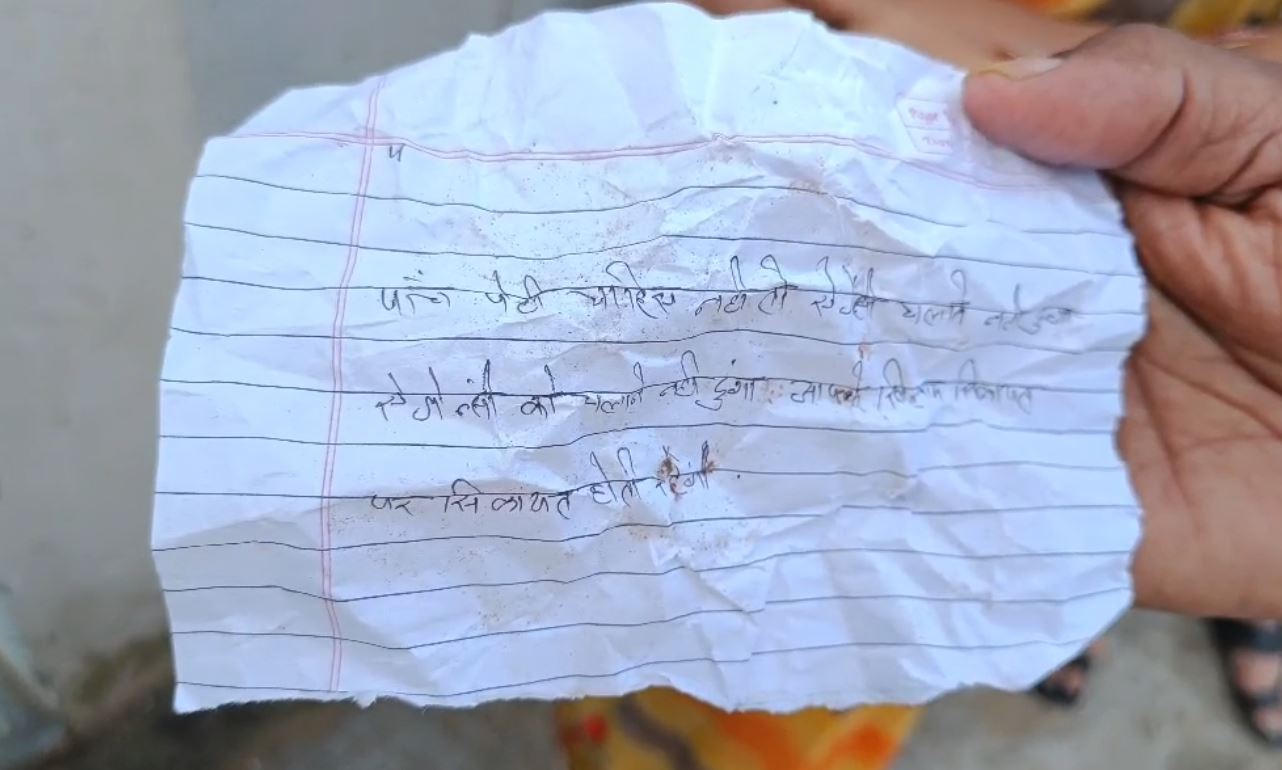 प
पाँच पेटी चाहिए नही तो एजेंसी चलाने नही दुंगा
एजेंसी को चलाने नही दुंगा आपके खिलाफ सिकायत
पर सिकायत होती रहेगी.